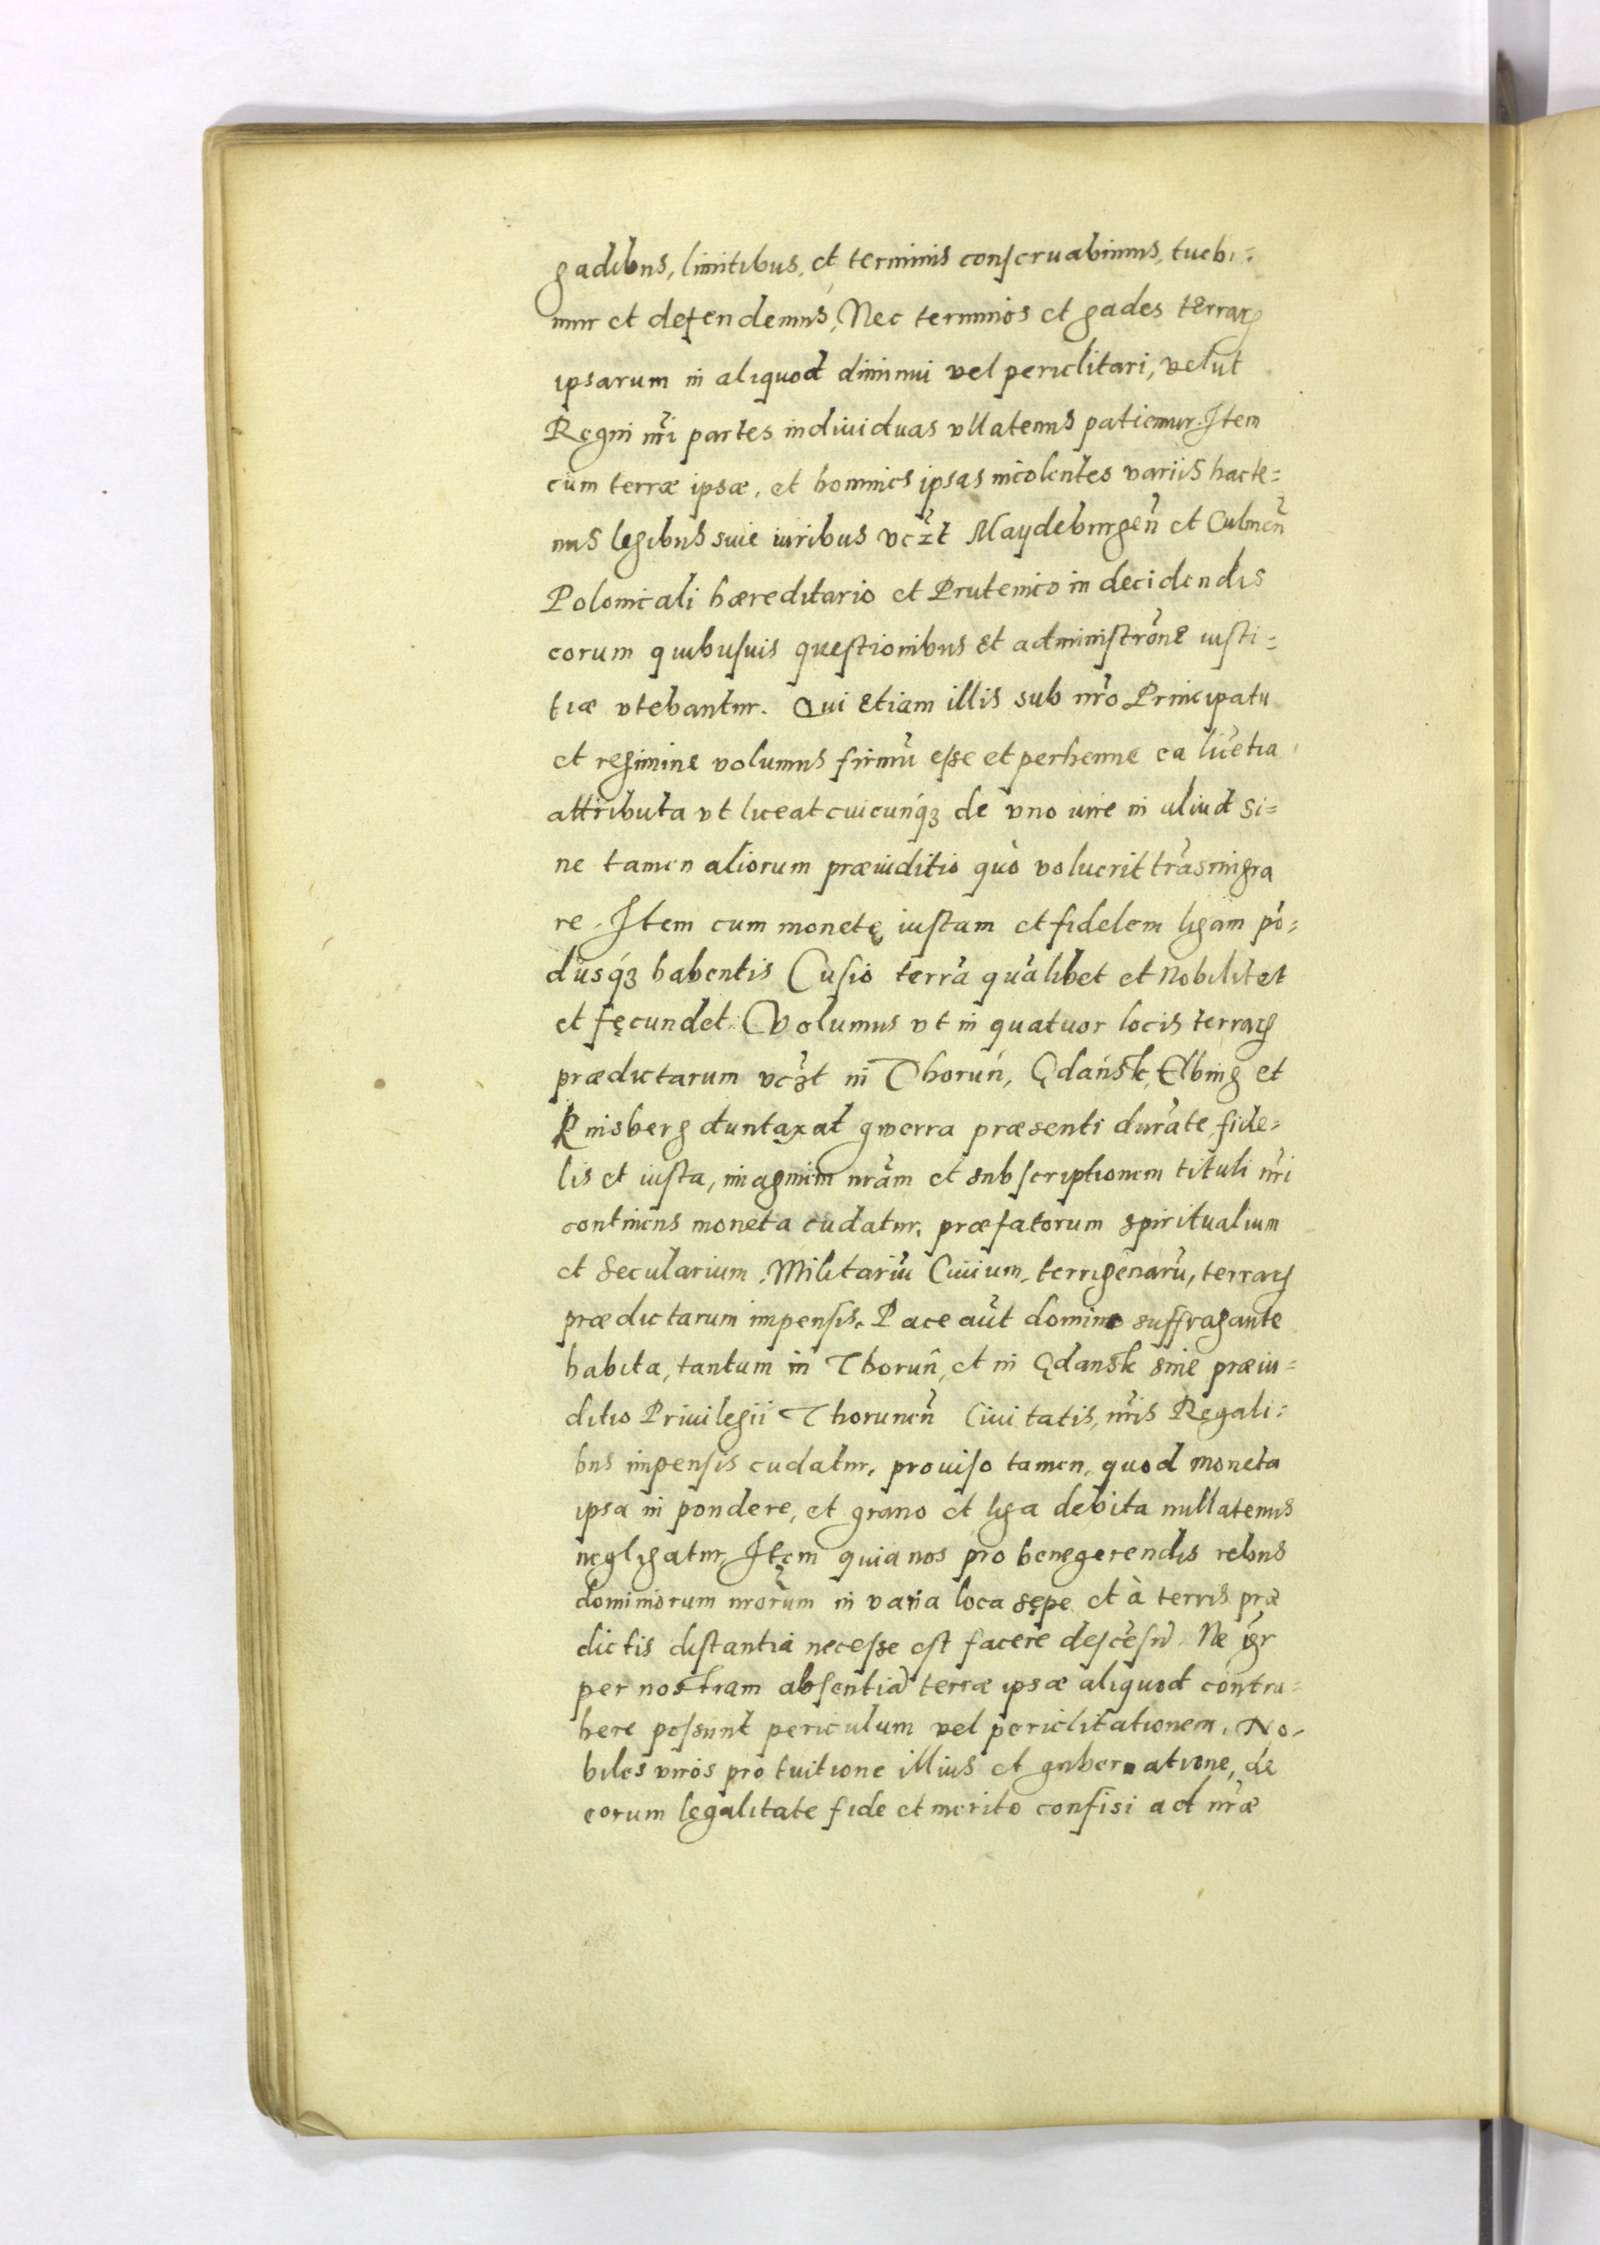 gadibus, limitibus, et terminis conseruabimus, tuebi=
mur et defendemus, Nec terminos et gades terraꝝ
ipsarum in aliquod diminui vel periclitari, velut
Regni nr̃i partes indiuiduas vllatenus patiemur. Item
cùm terræ ipsæ, et homines ipsas incolentes variis hacte=
nus legibus siue iuribus vcz̃t Maydeburgeñ et Culmeñ
Polonicali hæreditario et Prutenico in decidendis
eorum quibusuis questionibus et administrõne iusti=
tiæ vtebantur. Qui etiam illis sub nr̃o Principatu
et regimine volumus firmũ esse et perhenne ea licẽtia
attributa vt liceat cuicunqꝫ de vno iure in aliud si=
ne tamen aliorum præiuditio quò voluerit trãsmigra
re. Item cum monetę iustam et fidelem ligam põ=
dusqꝫ habentis Cusio terrã quãlibet et nobilitet
et fęcundet. Volumus vt in quatuor locis terraꝝ
prædictarum vcꝫ̃t in Thoruń, Gdańsk, Elbing et
Kinsberg duntaxat gwerra præsenti durãte fide=
lis et iusta, imaginim nrãm et subscriptionem tituli nr̃i
continens moneta cudatur, præfatorum spiritualium
et secularium, Militariũ Ciuium, terrigenarũ, terraꝝ
prædictarum impensis. Pace aũt domino suffragante
habita, tantum in Thoruñ, et in Gdansk sine præiu=
ditio Priuilegii Thorunen̄ Ciuitatis, nr̃is Regali=
bus impensis cudatur, prouiso tamen, quod moneta
ipsa in pondere, et grano et liga debita nullatenus
negligatur, Itęm quia nos pro benegerendis rebus
dominiorum nrõrum in varia loca sępe et à terris præ
dictis distantia necesse est facere descẽsũ. Ne igr̃
per nostram absentiã terræ ipsæ aliquod contra=
here possunt periculum vel periclitationem. No=
biles viros pro tuitione illius et gubernatione, de
eorum legalitate fide et merito confisi ad nr̃æ